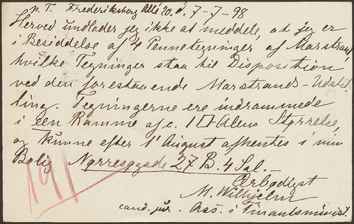 p. T. Frederiksborg Allé 20. d. 7-7-98
Herved undlader jeg ikke at meddele, at jeg er
i Besiddelse af 4 Pennetegninger af Marstrand
hvilke Tegninger staa til Disposition
ved den forestaaende Marstrands-Udstil
ling. Tegningerne ere indrammede
i een Ramme af c. 1 □ Alens Størrelse,
og kunne efter 1' August afhentes i min
Bolig Nørresøgade 27 B. 4 Sal.
Ærbødigst
M. Wilhjelm
cand. jur. Ass. i Finantsminist
191